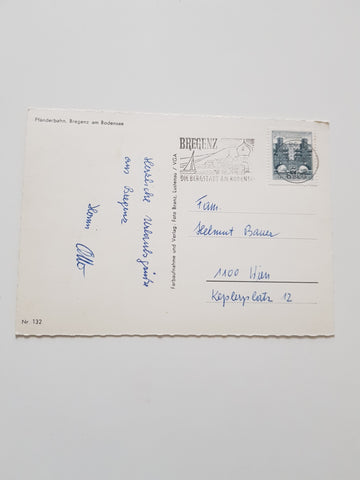 Pfänderbahn, Bregenz am Bodensee
Herzliche Urlaubsgrüße
aus Bregenz
Otto
Nr. 132
Farbaufnahme und Verlag: Foto Branz, Lustenau / VGA
BREGENZ
DIE BERGSTADT AM BODENSEE
Fam.
Helmut Bauer
1100 Wien
Keplerplatz 12